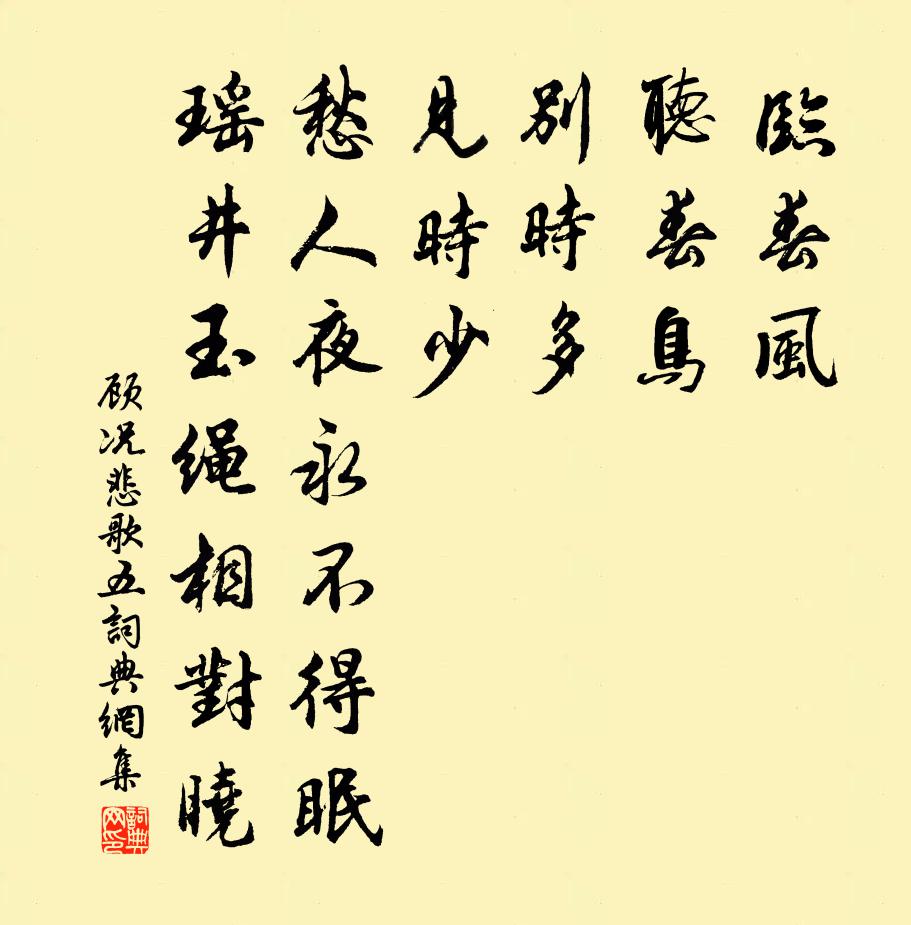 臨春風
聽春鳥
別時多
見時少
愁人夜永不得眠
瑶井玉绳相對曉
顾况悲歌五詞典網集
詞典網印